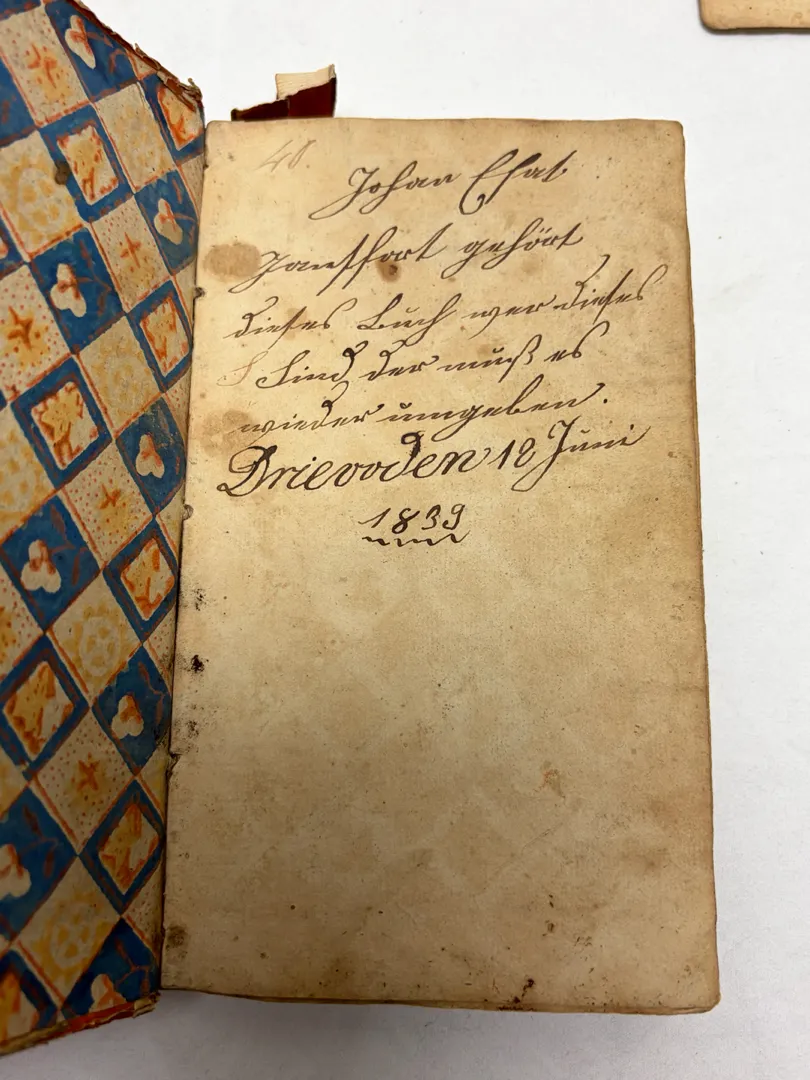 48.
Johan
gehört
dieses Buch wer dieses
find der muß es
wieder umgeben.
Drievoden 12 Juni
1839